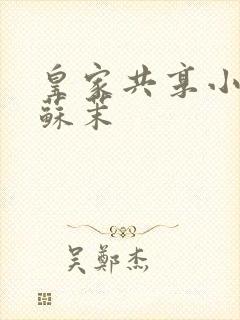 皇家共享小
蘇茉
吴鄭杰